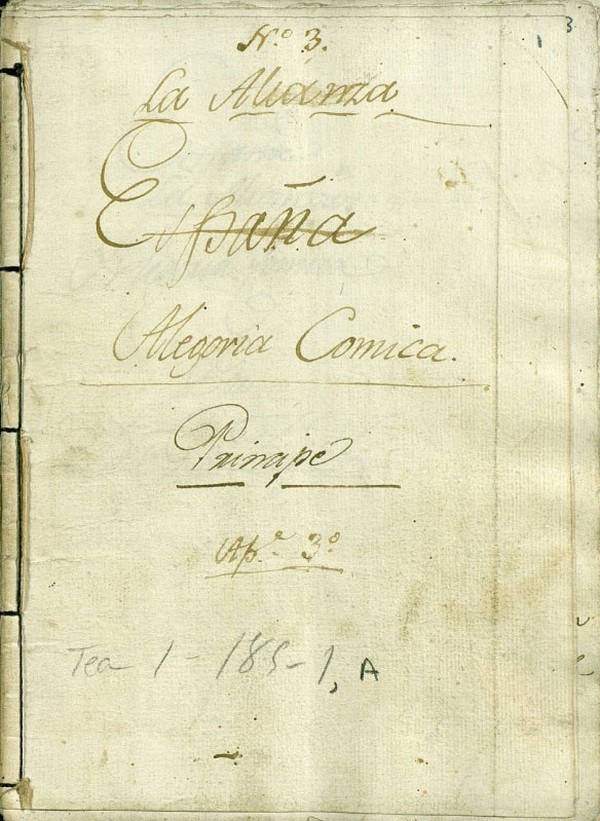 3
N.º 3.
1
La Alianza
España
Alegoría Comica.
Principe
Ap.e 3º
Tea 1-185-1, A